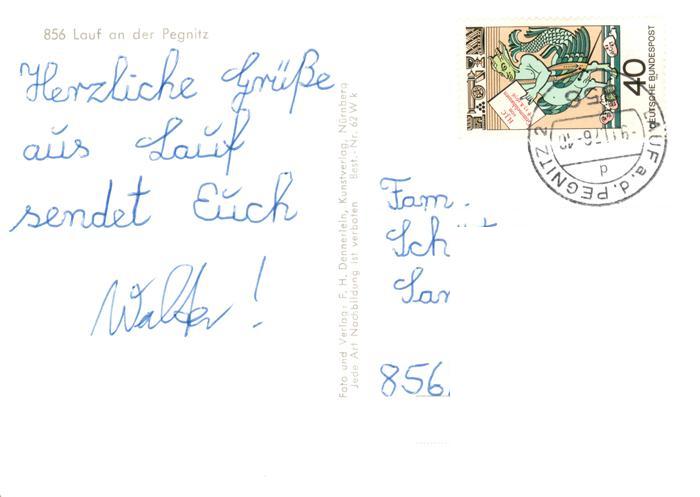 856 Lauf an der Pegnitz
Herzliche Grüße
aus Lauf
sendet Euch
Walter!
Foto und Verlag: F. H. Dennerlein, Kunstverlag, Nürnberg
Jede Art Nachbildung ist verboten Best.-Nr. 62 W k
40
DEUTSCHE BUNDESPOST
LAUF a. d. PEGNITZ 2
d
Fam.
Sch
856